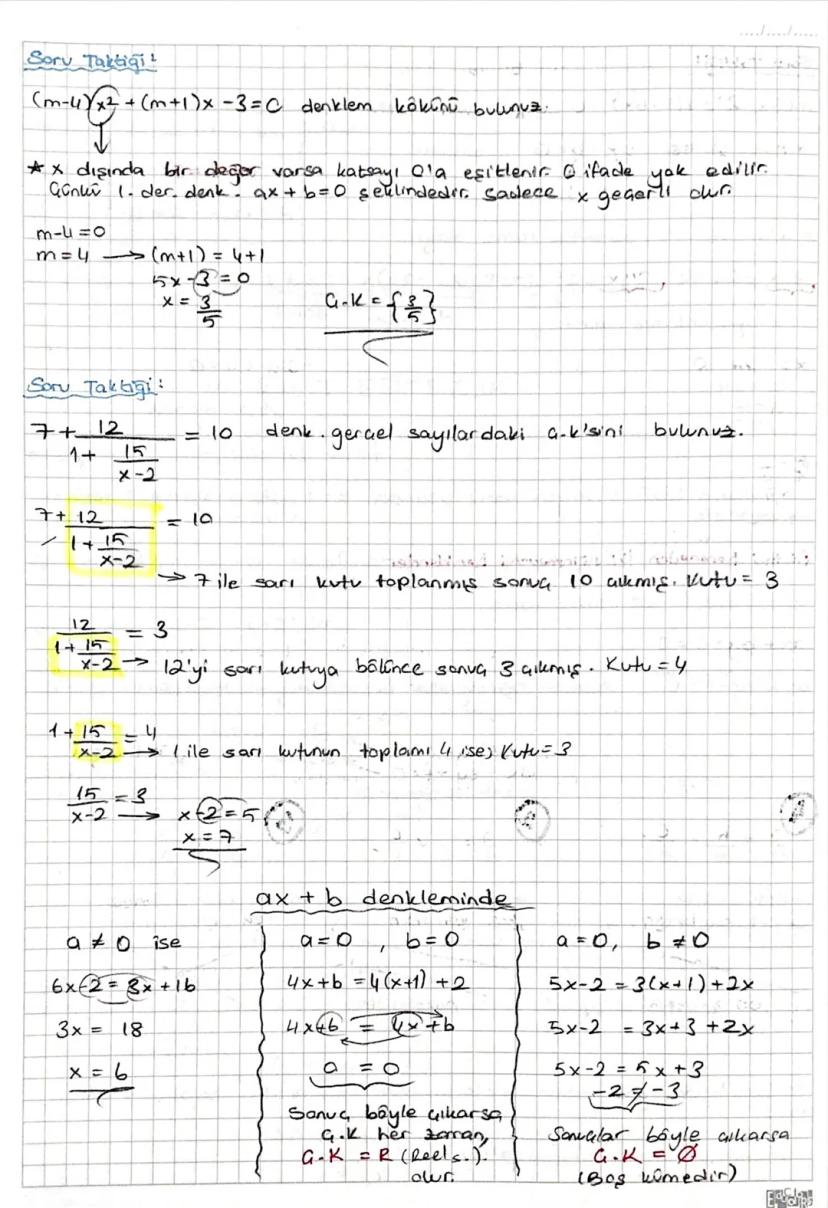 Soru Taktiği:
(m-4)x² + (m+1)x - 3 = 0 denklem kökünü bulunuz.
* x dışında bir değer varsa katsayı 0'a eşitlenir. O ifade yok edilir.
Çünkü 1. der. denk. ax + b = 0 şeklindedir. Sadece x geçerli olur.
m-4 = 0
m = 4 → (m+1) = 4+1
5x - 3 = 0
x = 3/5
Ç.K = {3/5}
Soru Taktiği:
7 + 12/(1 + 15/(x-2)) = 10 denk. gerçel sayılardaki Ç.K'sini bulunuz.
7 + 12/(1 + 15/(x-2)) = 10
→ 7 ile sarı kutu toplanmış sonuç 10 çıkmış. Kutu = 3
12/(1 + 15/(x-2)) = 3
→ 12'yi sarı kutuya bölünce sonuç 3 çıkmış. Kutu = 4
1 + 15/(x-2) = 4
→ 1 ile sarı kutunun toplamı 4 ise, Kutu = 3
15/(x-2) = 3 → x - 2 = 5
x = 7
ax + b denkleminde
a ≠ 0 ise
6x - 2 = 3x + 16
3x = 18
x = 6
a = 0, b = 0
4x + 6 = 4(x+1) + 2
4x + 6 = 4x + 6
0 = 0
Sonuç böyle çıkarsa
Ç.K her zaman,
Ç.K = R (Reel s.).
olur.
a = 0, b ≠ 0
5x - 2 = 3(x+1) + 2x
5x - 2 = 3x + 3 + 2x
5x - 2 = 5x + 3
-2 ≠ -3
Sonuçlar böyle çıkarsa
Ç.K = Ø
(Boş kümedir)